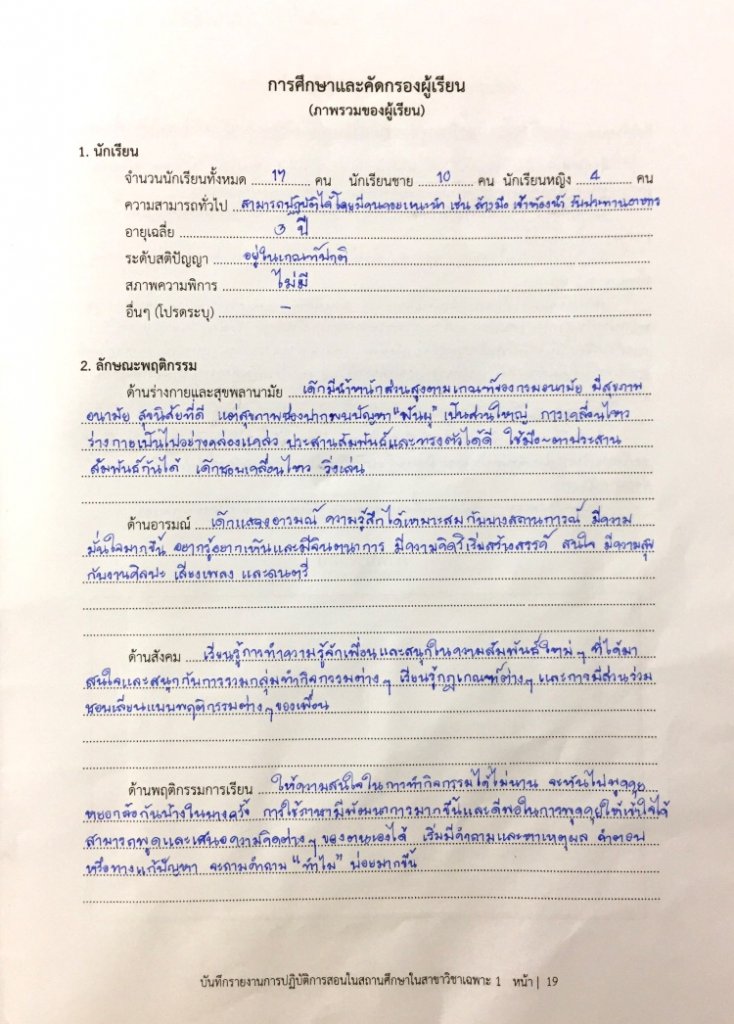 การศึกษาและคัดกรองผู้เรียน
(ภาพรวมของผู้เรียน)
1. นักเรียน
จำนวนนักเรียนทั้งหมด 17 คน นักเรียนชาย 10 คน นักเรียนหญิง 4 คน
ความสามารถทั่วไป สามารถปฏิบัติได้โดยมีคนคอยแนะนำ เช่น ล้างมือ เข้าห้องน้ำ รับประทานอาหาร
อายุเฉลี่ย 3 ปี
ระดับสติปัญญา อยู่ในเกณฑ์ปกติ
สภาพความพิการ ไม่มี
อื่นๆ (โปรดระบุ) -
2. ลักษณะพฤติกรรม
ด้านร่างกายและสุขพลานามัย เด็กมีน้ำหนักส่วนสูงตามเกณฑ์ของกรมอนามัย มีสุขภาพ
อนามัย สุขนิสัยที่ดี แต่สุขภาพช่องปากพบปัญหา "ฟันผุ" เป็นส่วนใหญ่ การเคลื่อนไหว
ร่างกายเป็นไปอย่างคล่องแคล่ว ประสานสัมพันธ์และทรงตัวได้ดี ใช้มือ-ตาประสาน
สัมพันธ์กันได้ เด็กชอบเคลื่อนไหว วิ่งเล่น
ด้านอารมณ์ เด็กแสดงอารมณ์ ความรู้สึกได้เหมาะสมกับบางสถานการณ์ มีความ
มั่นใจมากขึ้น อยากรู้อยากเห็นและมีจินตนาการ มีความคิดริเริ่มสร้างสรรค์ สนใจ มีความสุข
กับงานศิลปะ เสียงเพลง และดนตรี
ด้านสังคม เรียนรู้การทำความรู้จักเพื่อนและสนุกในความสัมพันธ์ใหม่ๆ ที่ได้มา
สนใจและสนุกกับการรวมกลุ่มทำกิจกรรมต่างๆ เรียนรู้กฎเกณฑ์ต่างๆ และการมีส่วนร่วม
ชอบเลียนแบบพฤติกรรมต่างๆ ของเพื่อน
ด้านพฤติกรรมการเรียน ให้ความสนใจในการทำกิจกรรมได้ไม่นาน จะหันไปพูดคุย
หยอกล้อกันบ้างในบางครั้ง การใช้ภาษามีพัฒนาการมากขึ้นและดีพอในการพูดคุยให้เข้าใจได้
สามารถพูดและเสนอความคิดต่างๆ ของตนเองได้ เริ่มมีคำถามและหาเหตุผล คำตอบ
หรือทางแก้ปัญหา จะถามคำถาม "ทำไม" บ่อยมากขึ้น
บันทึกรายงานการปฏิบัติการสอนในสถานศึกษาในสาขาวิชาเฉพาะ 1 หน้า | 19